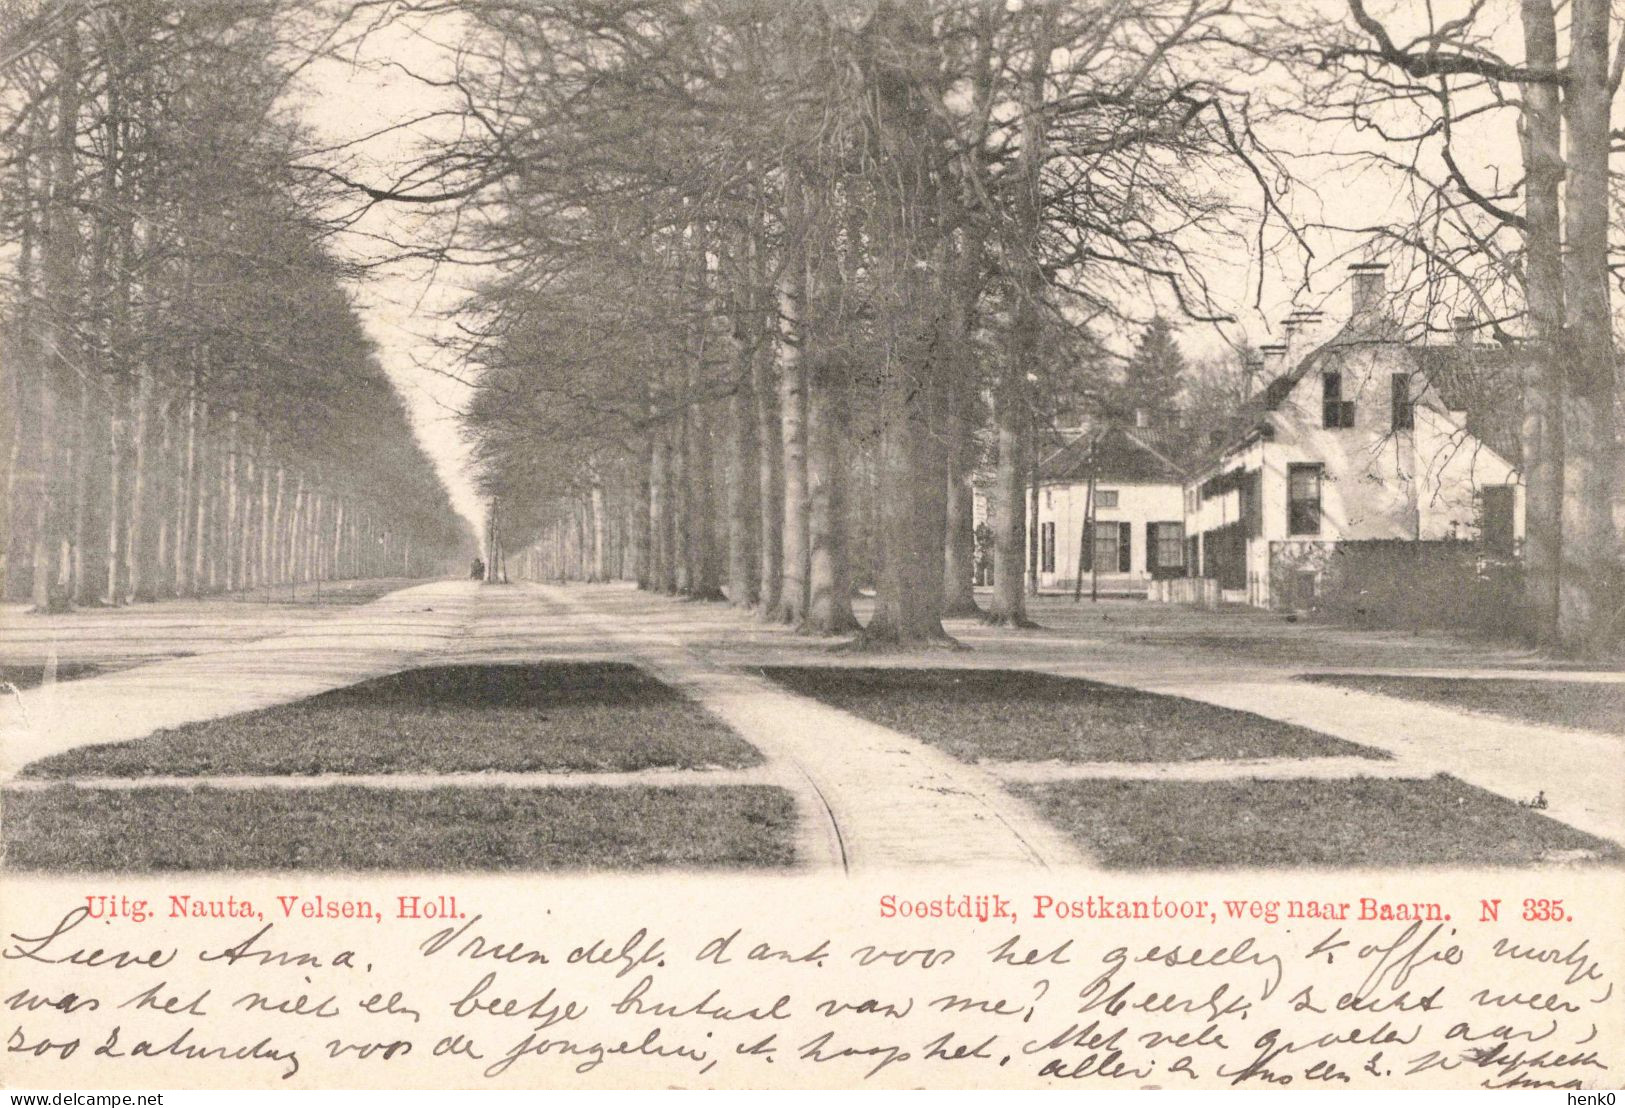 Uitg. Nauta, Velsen, Holl.
Soestdijk, Postkantoor, weg naar Baarn. N 335.
Lieve Anna. Vriendelijk dank voor het gesellig koffie
was het niet een beetje brutaal van me? Heerlijk zacht weer
zoo Zaturdag voor de jongelui, ik hoop het. Met vele groeten aan
allen
delcampe.net
henk0